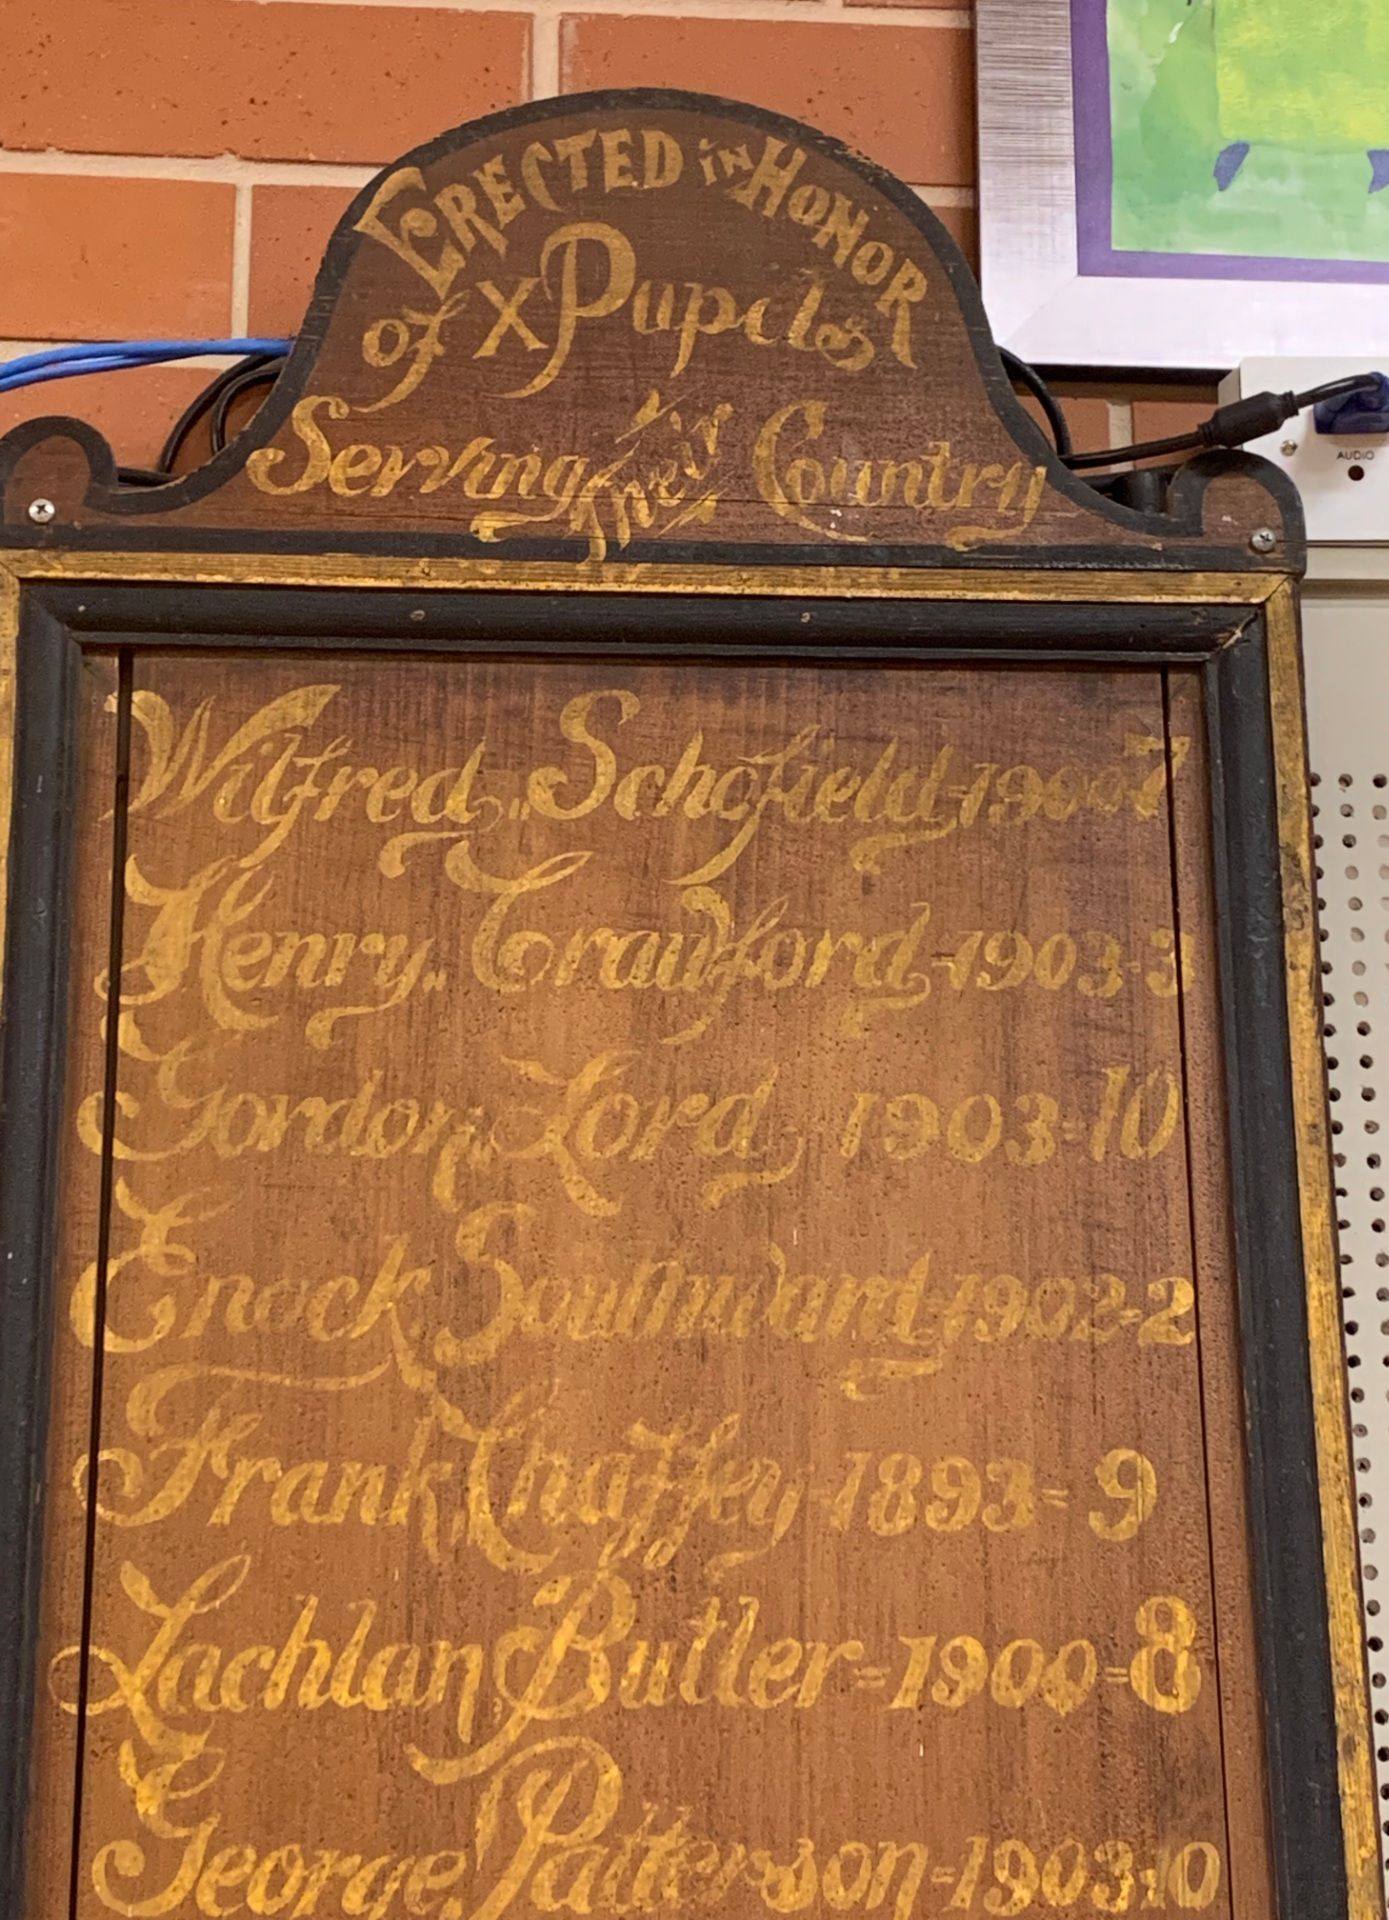 ERECTED in HONOR
of X Pupils
Serving Their Country
Wilfred Schofield-1900=7
Henry Crawford-1903=3
Gordon Lord 1903=10
Enock Southward-1902=2
Frank Chaffey-1893=9
Lachlan Butler=1900=8
George Patterson=1903=10
AUDIO